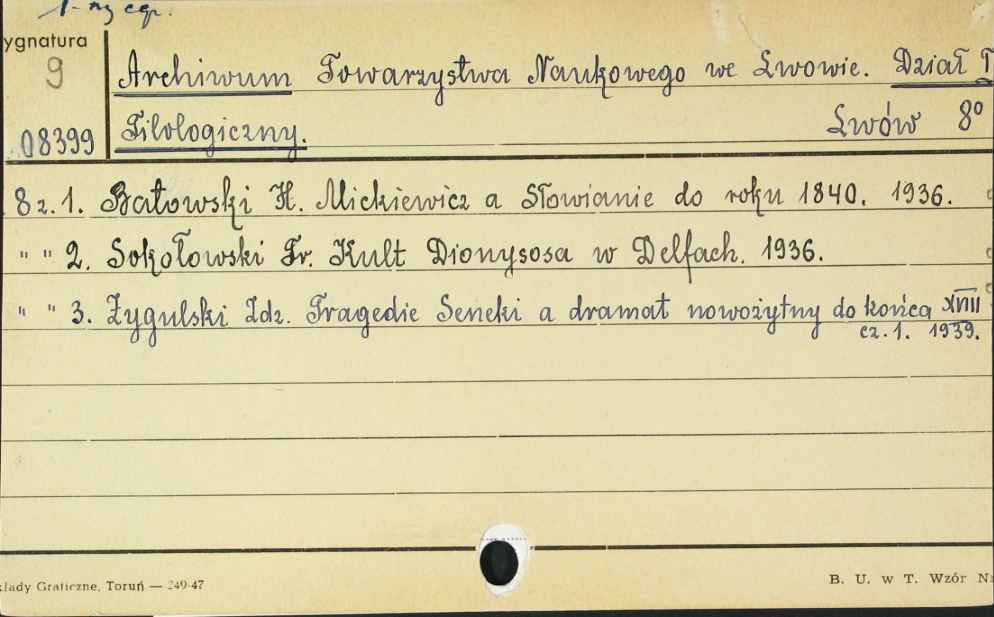 1-szy egz.
ygnatura
9
Archiwum Towarzystwa Naukowego we Lwowie. Dział I
08399
Filologiczny. Lwów 8°
8 z. 1. Batowski H. Mickiewicz a Słowianie do roku 1840. 1936.
" " 2. Sokołowski Fr. Kult Dionysosa w Delfach. 1936.
" " 3. Żygulski Zdz. Tragedie Seneki a dramat nowożytny do końca XVIII
cz. 1. 1939.
kłady Graficzne, Toruń — 249/47
B. U. w T. Wzór Nr